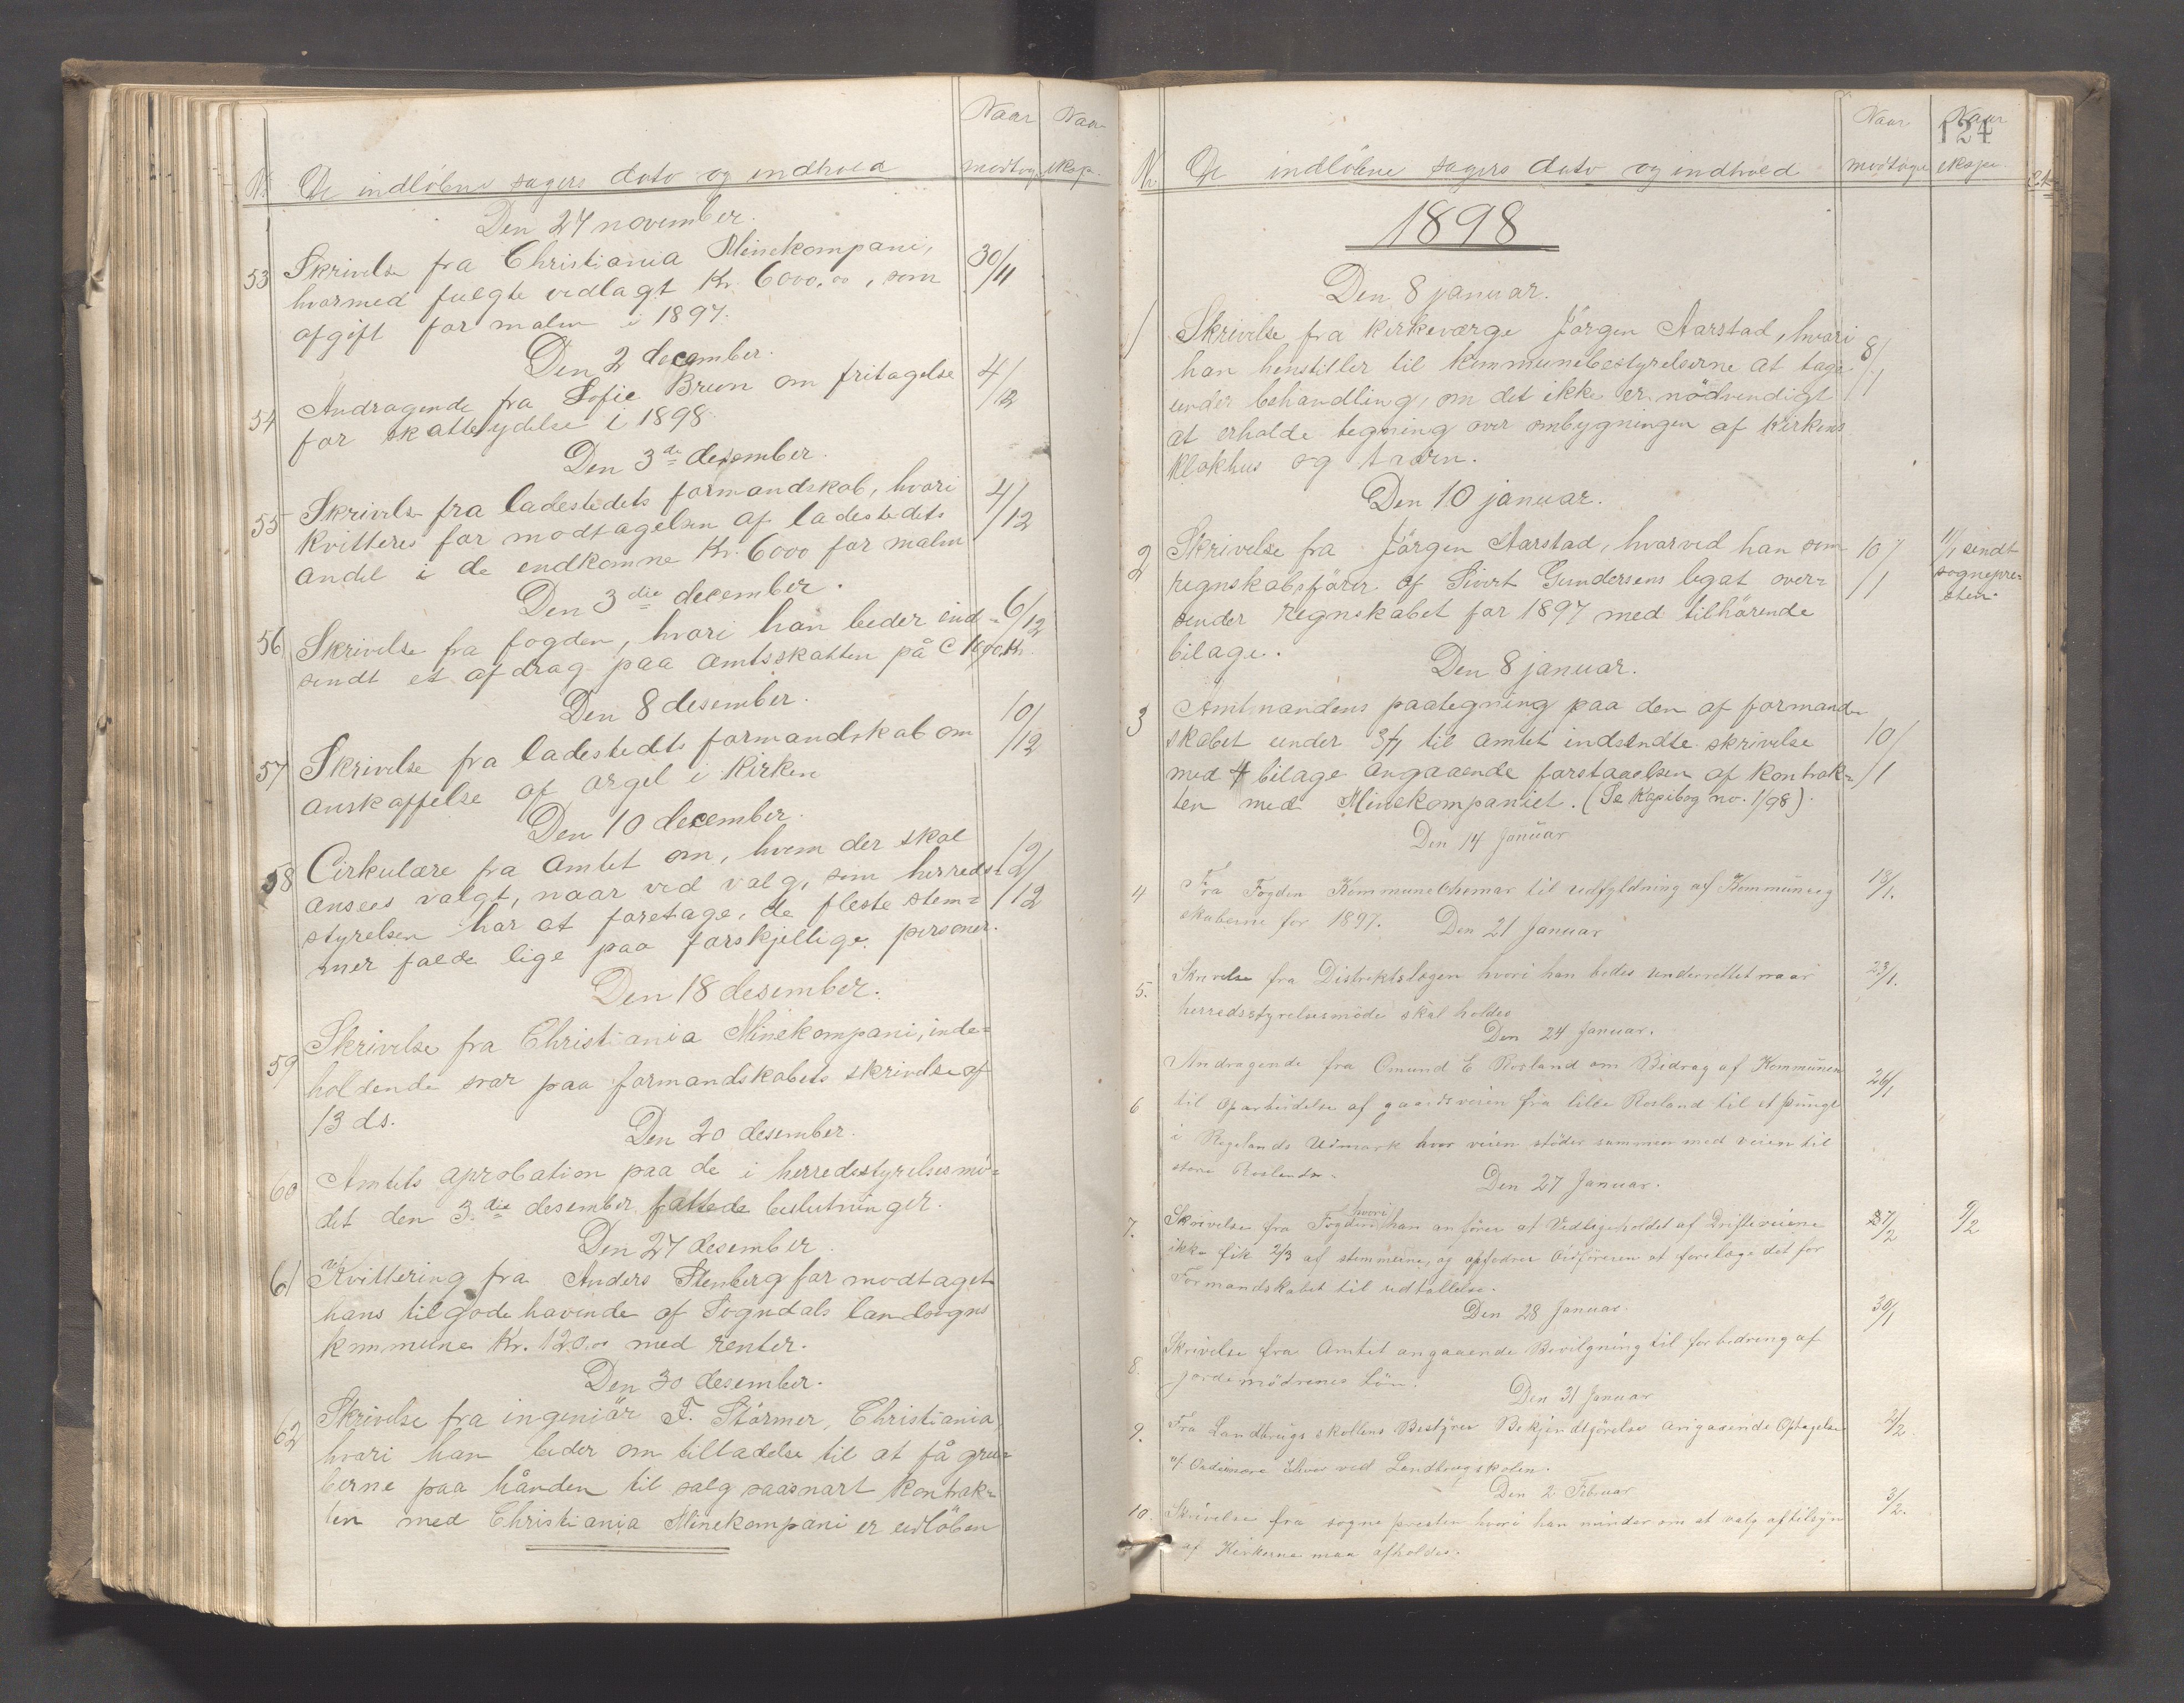 Naar Naar
Nr. De indløbne sagers dato og indhold modtog eksp.
Den 27 november.
53 Skrivelse fra Christiania Minekompani, 30/11
hvormed fulgte vedlagt Kr. 6000,00, som
afgift for malm i 1897.
Den 2 december.
54 Andragende fra Sofie Bruun om fritagelse 4/12
for skatteydelse i 1898.
Den 3de desember.
55 Skrivelse fra ladestedets formandskab, hvori 4/12
kvitteres for modtagelsen af ladestedets
andel i de indkomne Kr. 6000 for malm
Den 3die december.
56 Skrivelse fra fogden, hvori han beder ind- 6/12
sendt et afdrag paa amtsskatten på
Den 8 desember.
57 Skrivelse fra ladestedets formandskab om 10/12
anskaffelse af orgel i Kirken
Den 10 december.
58 Cirkulære fra amtet om, hvem der skal 12/12
ansees valgt, naar ved valg, som herreds-
styrelsen har at foretage, de fleste stem=
mer falde lige paa forskjellige personer.
Den 18 desember.
59 Skrivelse fra Christiania Minekompani, inde=
holdende svar paa formandskabets skrivelse af
13 ds.
Den 20 desember.
60 Amtets aprobation paa de i herredsstyrelsesmö=
det den 3die desember fattede beslutninger.
Den 27 desember.
61 Kvittering fra Anders Stenberg for modtaget
hans tilgodehavende af Sogndals landsogns
kommune Kr. 120,00 med renter.
Den 30 desember.
62 Skrivelse fra ingeniör F. Störmer, Christiania,
hvori han beder om tilladelse til at få gru=
berne paa hånden til salg saasnart kontrak=
ten med Christiania Minekompani er udlöben
124
Naar Naar
Nr De indlöbne sagers dato og indhold modtage ekspe.
1898
Den 8 januar.
1 Skrivelse fra kirkeværge Jörgen Aarstad, hvori 8/1
han henstiller til kommunebestyrelserne at tage
under behandling, om det ikke er nödvendigt
at erholde tegning over ombygningen af kirkens
klokhus og taarn.
Den 10 januar.
2 Skrivelse fra Jörgen Aarstad, hvorved han som 10/1 11/1 sendt
regnskabsförer af Sivert Gundersens legat over= sognepre=
sender regnskabet for 1897 med tilhörende sten.
bilage.
Den 8 januar.
3 Amtmandens paategning paa den af formand=
skabet under 3/1 til amtet indsendte skrivelse 10/1
med 4 bilage angaaende forstaaelsen af kontrak=
ten med Minekompaniet. (Se kopibog no. 1/98).
Den 14 Januar
4 Fra Fogden til udfyldning af 18/1.
skaberne for 1897. Den 21 Januar
5. Skrivelse fra Distriktslægen hvori han bedes underrettet naar 23/1.
herredsstyrelsesmöde skal holdes
Den 24 Januar.
Andragende fra Omund E Rosland om Bidrag af Kommunen 26/1
6 til Oparbeidelse af gaardsveien fra lille Rosland til et
i Regelands Udmark hvor veien stöder sammen med veien til
store Rosland.
Den 27 Januar.
7. Skrivelse fra Fogden hvori han anförer at Vedligeholdet af Drifteveiene 7/2 9/2
ikke fik 2/3 af stemmerne, og opfordrer Ordföreren at forelægge det for
Formandskabet til udtallelse.
Den 28 Januar. 30/1
8. Skrivelse fra Amtet angaaende Bevilgning til forbedring af
jordemödrenes Lön.
Den 31 Januar
9. Fra Landbrugsskollens Bestyrer Bekjendtgörelse angaaende Optagelse 2/2
af Ordinære Elever ved Landbrugskolen.
Den 2 Februar
10. Skrivelse fra sognepresten hvori han minder om at valg af tilsyn 3/2.
af Kirkerne maa afholdes.